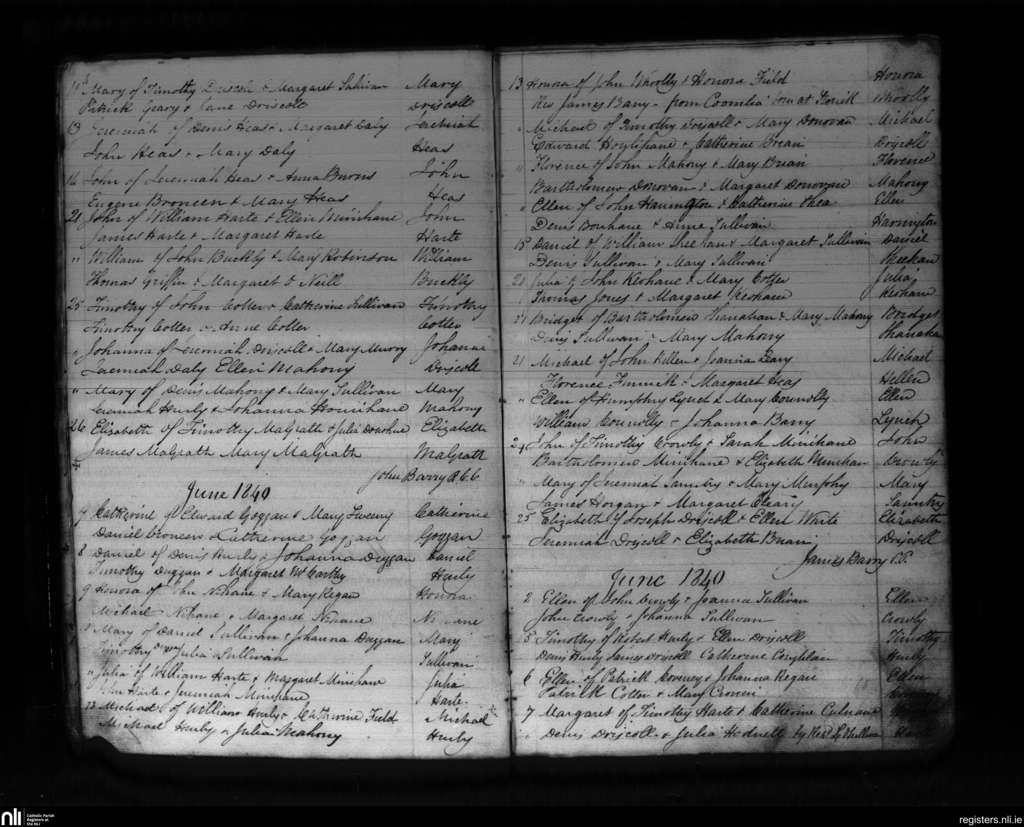 11 Mary of Timothy Driscoll & Margaret Sulivan Mary
Patrick Geary & Jane Driscoll Driscoll
13 Jeremiah of Denis Heas & Margaret Daly Jeremiah
John Heas & Mary Daly Heas
16 John of Jeremiah Heas & Anna Burns John
Eugene Broncen & Mary Heas Heas
21 John of William Harte & Ellen Minihane John
James Harte & Margaret Harte Harte
" William of John Buckly & Mary Robinson William
Thomas Griffin & Margaret O Neill Buckly
25 Timothy of John Cotter & Catherine Sullivan Timothy
Timothy Cotter & Anne Cotter Cotter
" Johanna of Jeremiah Driscoll & Mary Murry Johanna
Jeremiah Daly Ellen Mahony Driscoll
" Mary of Denis Mahony & Mary Sullivan Mary
Jeremiah Hurly & Johanna Hourihane Mahony
26 Elizabeth of Timothy MaGrath & Julia Donohue Elizabeth
James MaGrath Mary MaGrath MaGrath
John Barry R.C.C.
June 1840
7 Catherine of Edward Goggan & Mary Sweeny Catherine
Daniel Catherine Goggan Goggan
8 Daniel of Denis Hurly & Johanna Duggan Daniel
Timothy Duggan & Margaret McCarthy Hurly
9 Honora of John Nihane & Mary Regan Honora
Michael Nihane & Margaret Nihane Nihane
" Mary of Daniel Sullivan & Johanna Duggan Mary
Timothy Julia Sullivan Sullivan
" Julia of William Harte & Margaret Minihane Julia
John Harte & Jeremiah Minihane Harte
13 Michael of William Hurly & Catherine Field Michael
Michael Hurly & Julia Mahony Hurly
13 Honora of John Whoolly & Honora Field Honora
Rev James Barry - from at Whoolly
" Michael of Timothy Driscoll & Mary Donovan Michael
Edward & Catherine Brian Driscoll
" Florence of John Mahony & Mary Brian Florence
Bartholomew Donovan & Margaret Donovan Mahony
" Ellen of John Harrington & Catherine Shea Ellen
Denis & Anne Sullivan Harrington
15 Daniel of William Sheehan & Margaret Sullivan Daniel
Denis Sullivan & Mary Sullivan Sheehan
20 Julia of John Keohane & Mary Cotter Julia
Thomas Jones & Margaret Keohane Keohane
21 Bridget of Bartholomew Shanahan & Mary Mahony Bridget
Denis Sullivan & Mary Mahony Shanahan
21 Michael of John Hellen & Joanna Geary Michael
Florence & Margaret Heas Hellen
" Ellen of Humphry Lynch & Mary Connolly Ellen
William Connolly & Johanna Barry Lynch
24 John of Timothy Crowly & Sarah Minihane John
Bartholomew Minihane & Elizabeth Crowly
" Mary of Jeremiah Santry & Mary Murphy Mary
James Horgan & Margaret Cleary Santry
25 Elizabeth of Joseph Driscoll & Ellen White Elizabeth
Jeremiah Driscoll & Elizabeth Brian Driscoll
James Barry P.P.
June 1840
2 Ellen of John Crowly & Joanna Sullivan Ellen
John Crowly & Johanna Sullivan Crowly
3 Timothy of Robert Hurly & Ellen Driscoll Timothy
Denis Hurly James Driscoll Catherine Coughlan Hurly
6 Ellen of Patrick & Johanna Regan Ellen
Patrick Cotter & Mary
7 Margaret of Timothy Harte & Catherine
Denis Driscoll & Julia Hodnett by Revd
nli
Catholic Parish
Registers at
the NLI
registers.nli.ie